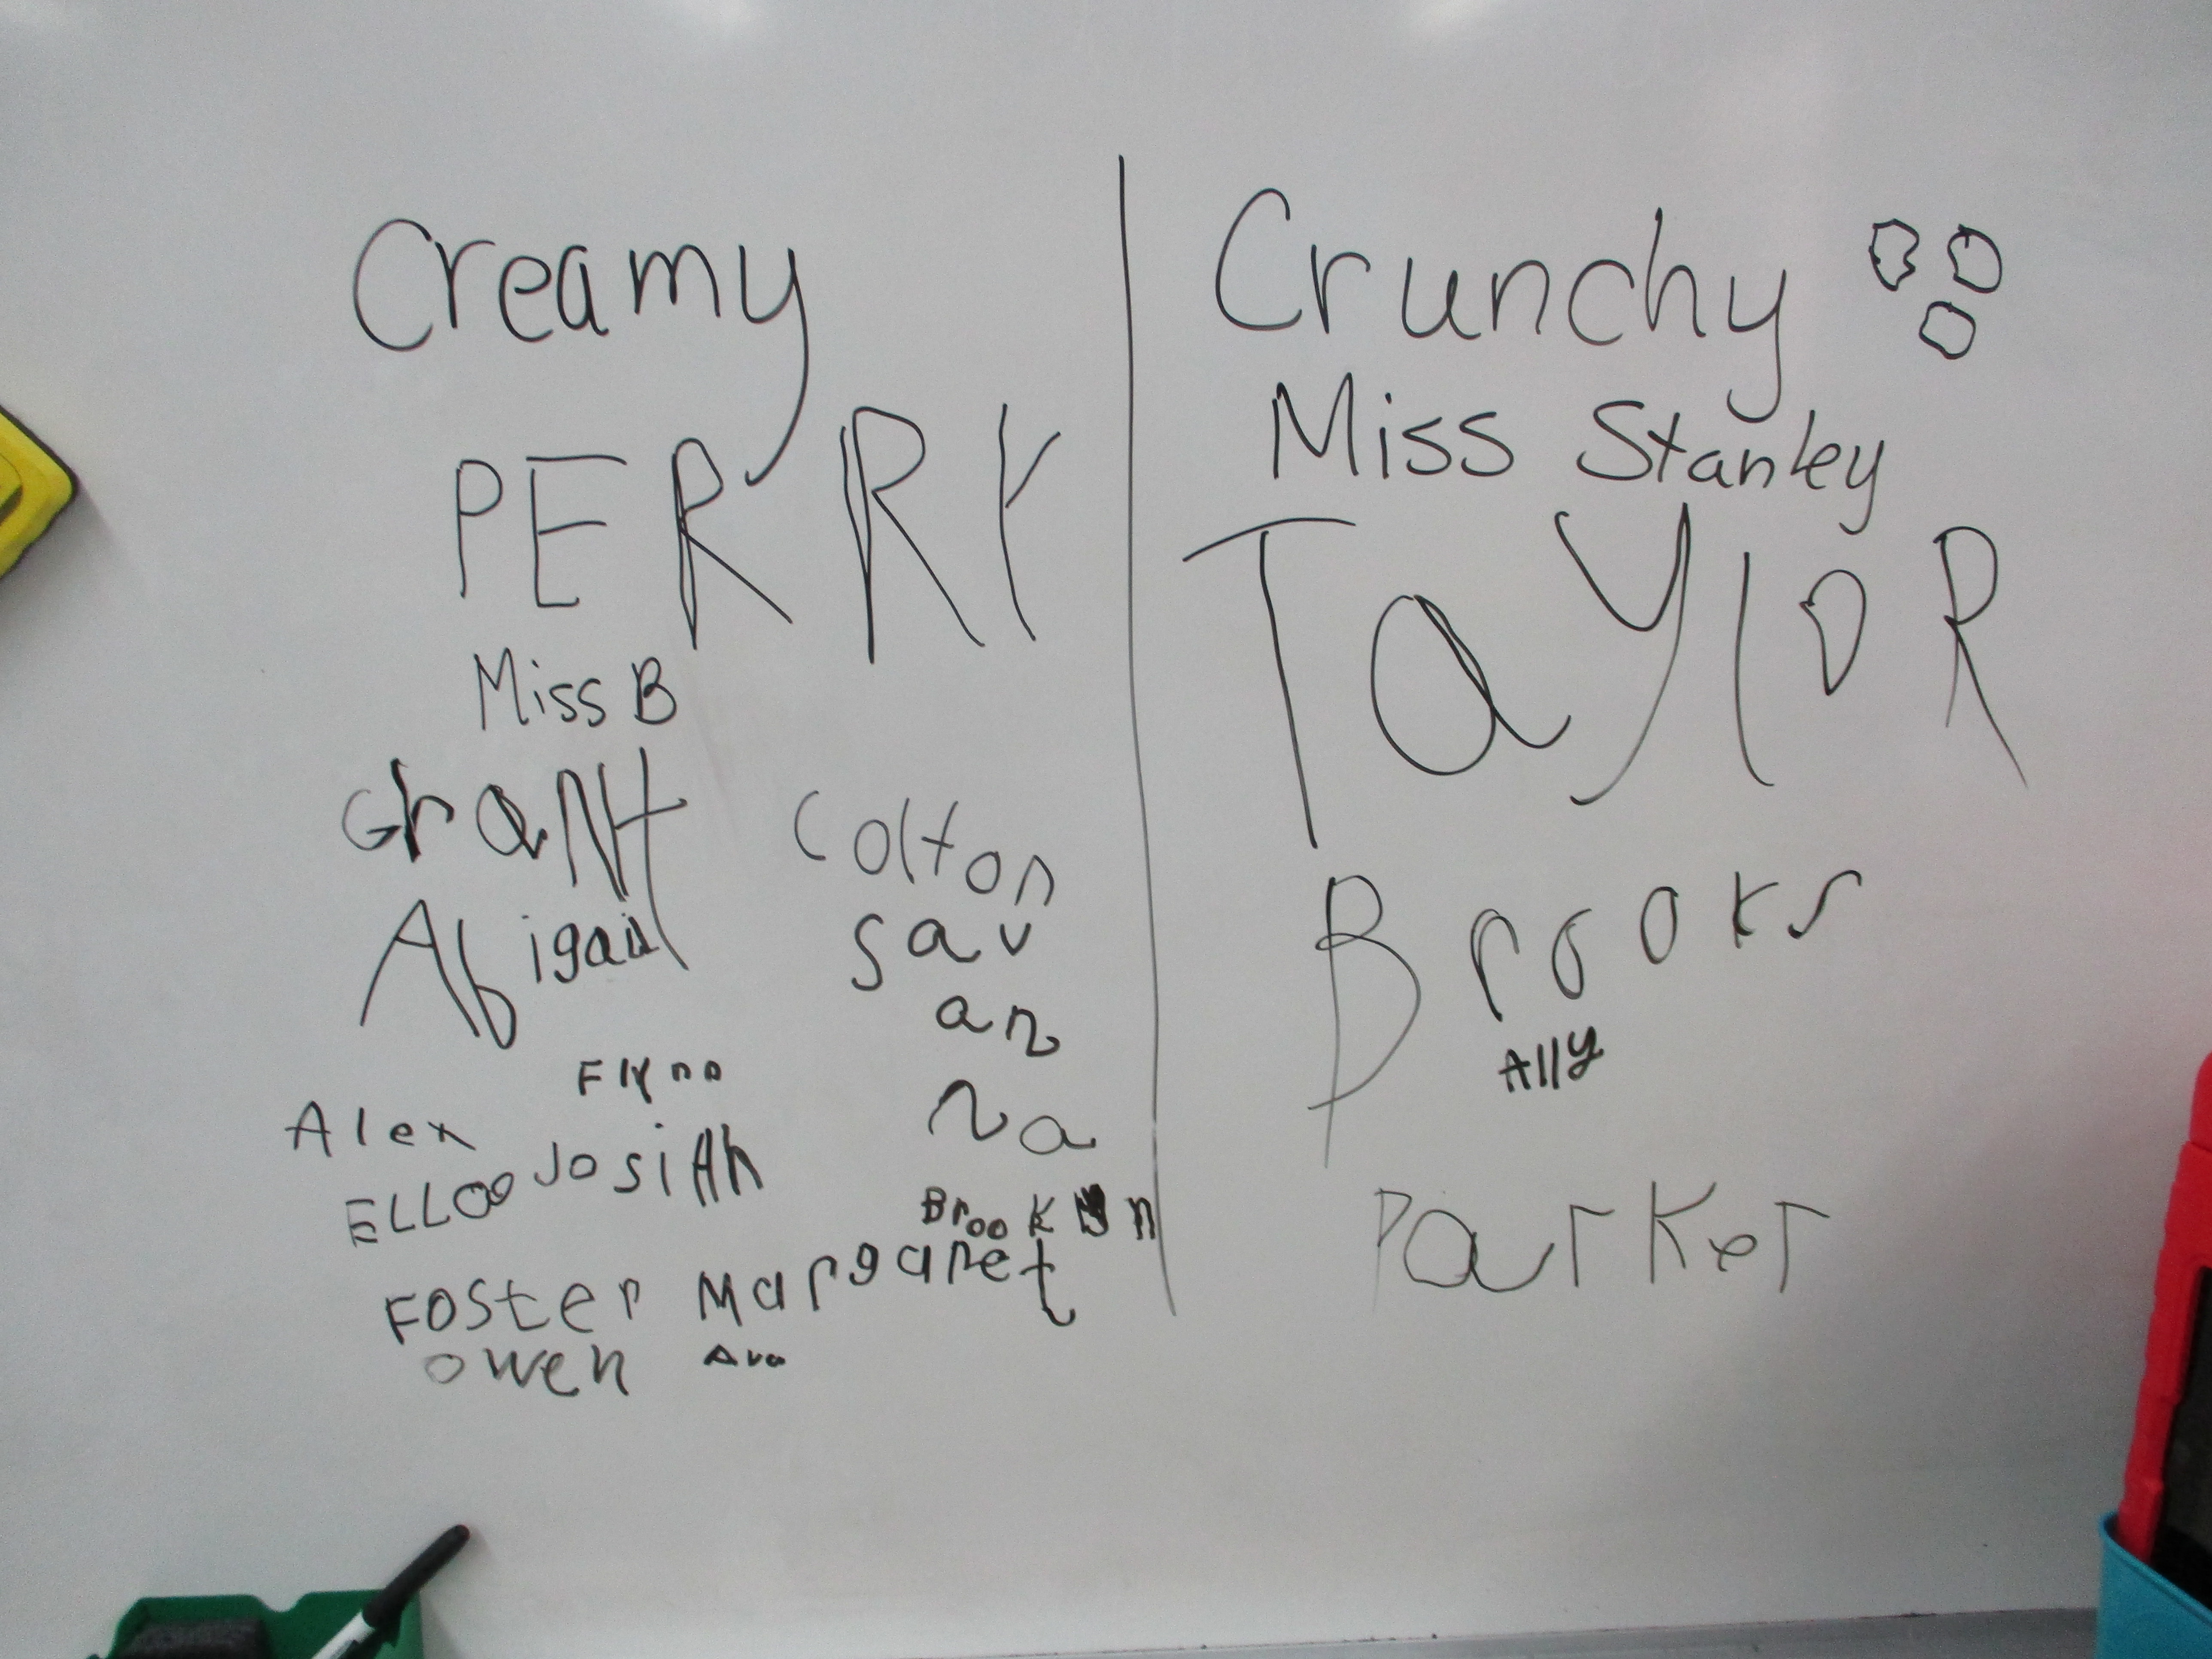 Creamy
PERRY
Miss B
GraNt
Colton
Abigail
Sav
an
na
Flynn
Alex
Josiah
Brooklyn
Foster
Margaret
Owen
Ava
Crunchy
Miss Stanley
TaylOR
Brooks
Ally
Parker